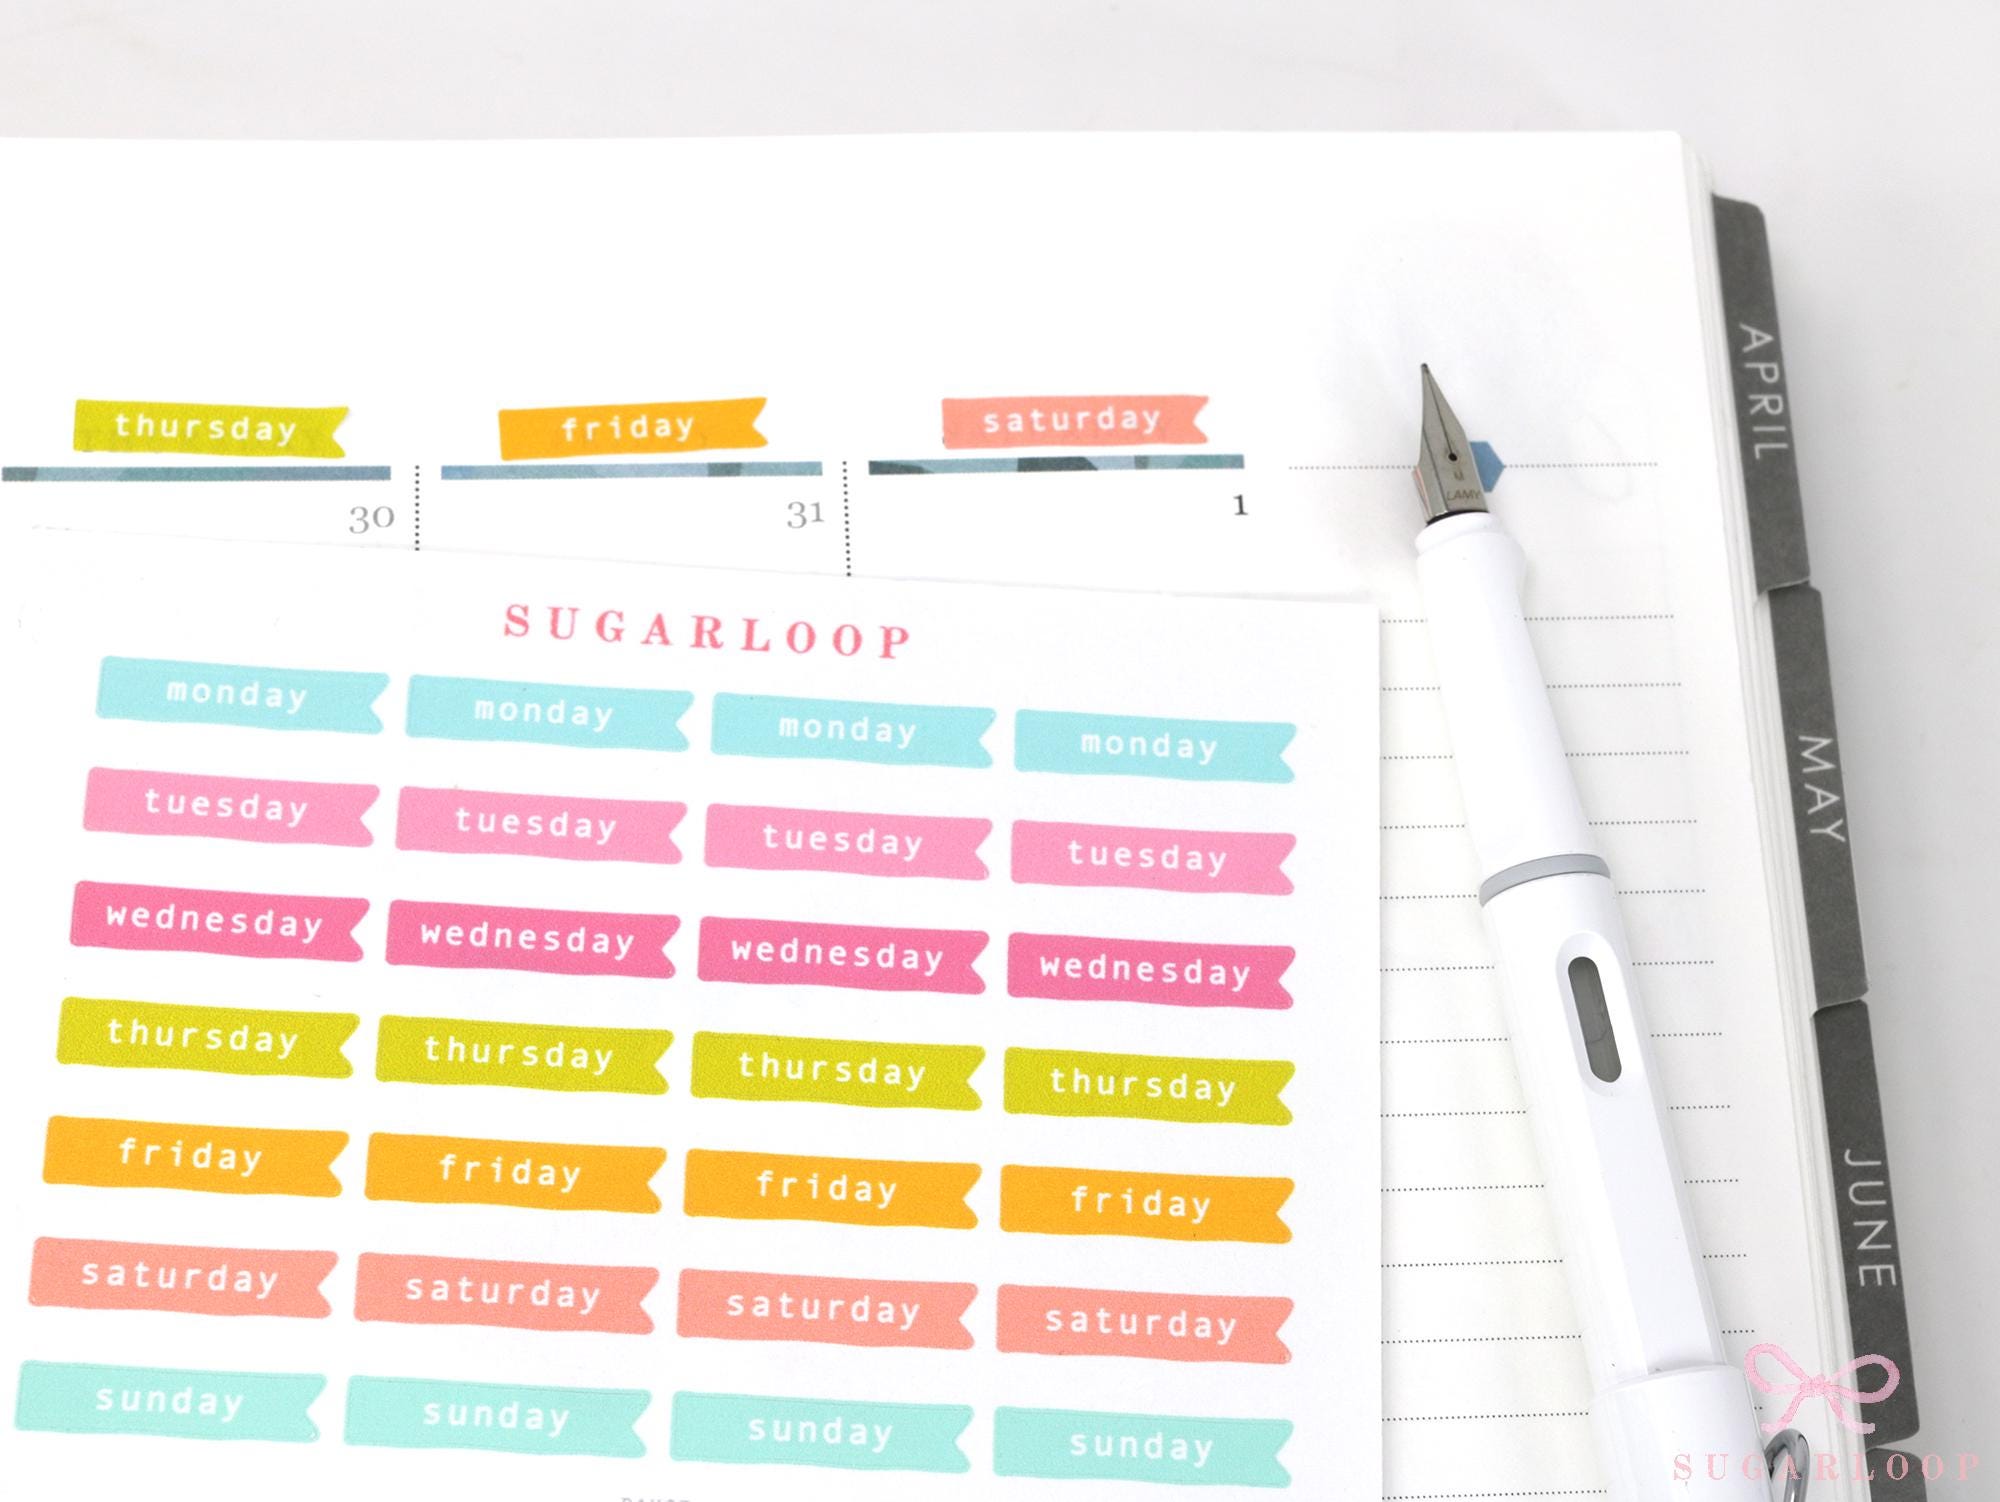 thursday friday saturday
30 31 1
LAMY
SUGARLOOP
monday monday monday monday
tuesday tuesday tuesday tuesday
wednesday wednesday wednesday wednesday
thursday thursday thursday thursday
friday friday friday friday
saturday saturday saturday saturday
sunday sunday sunday sunday
APRIL
MAY
JUNE
SUGARLOOP